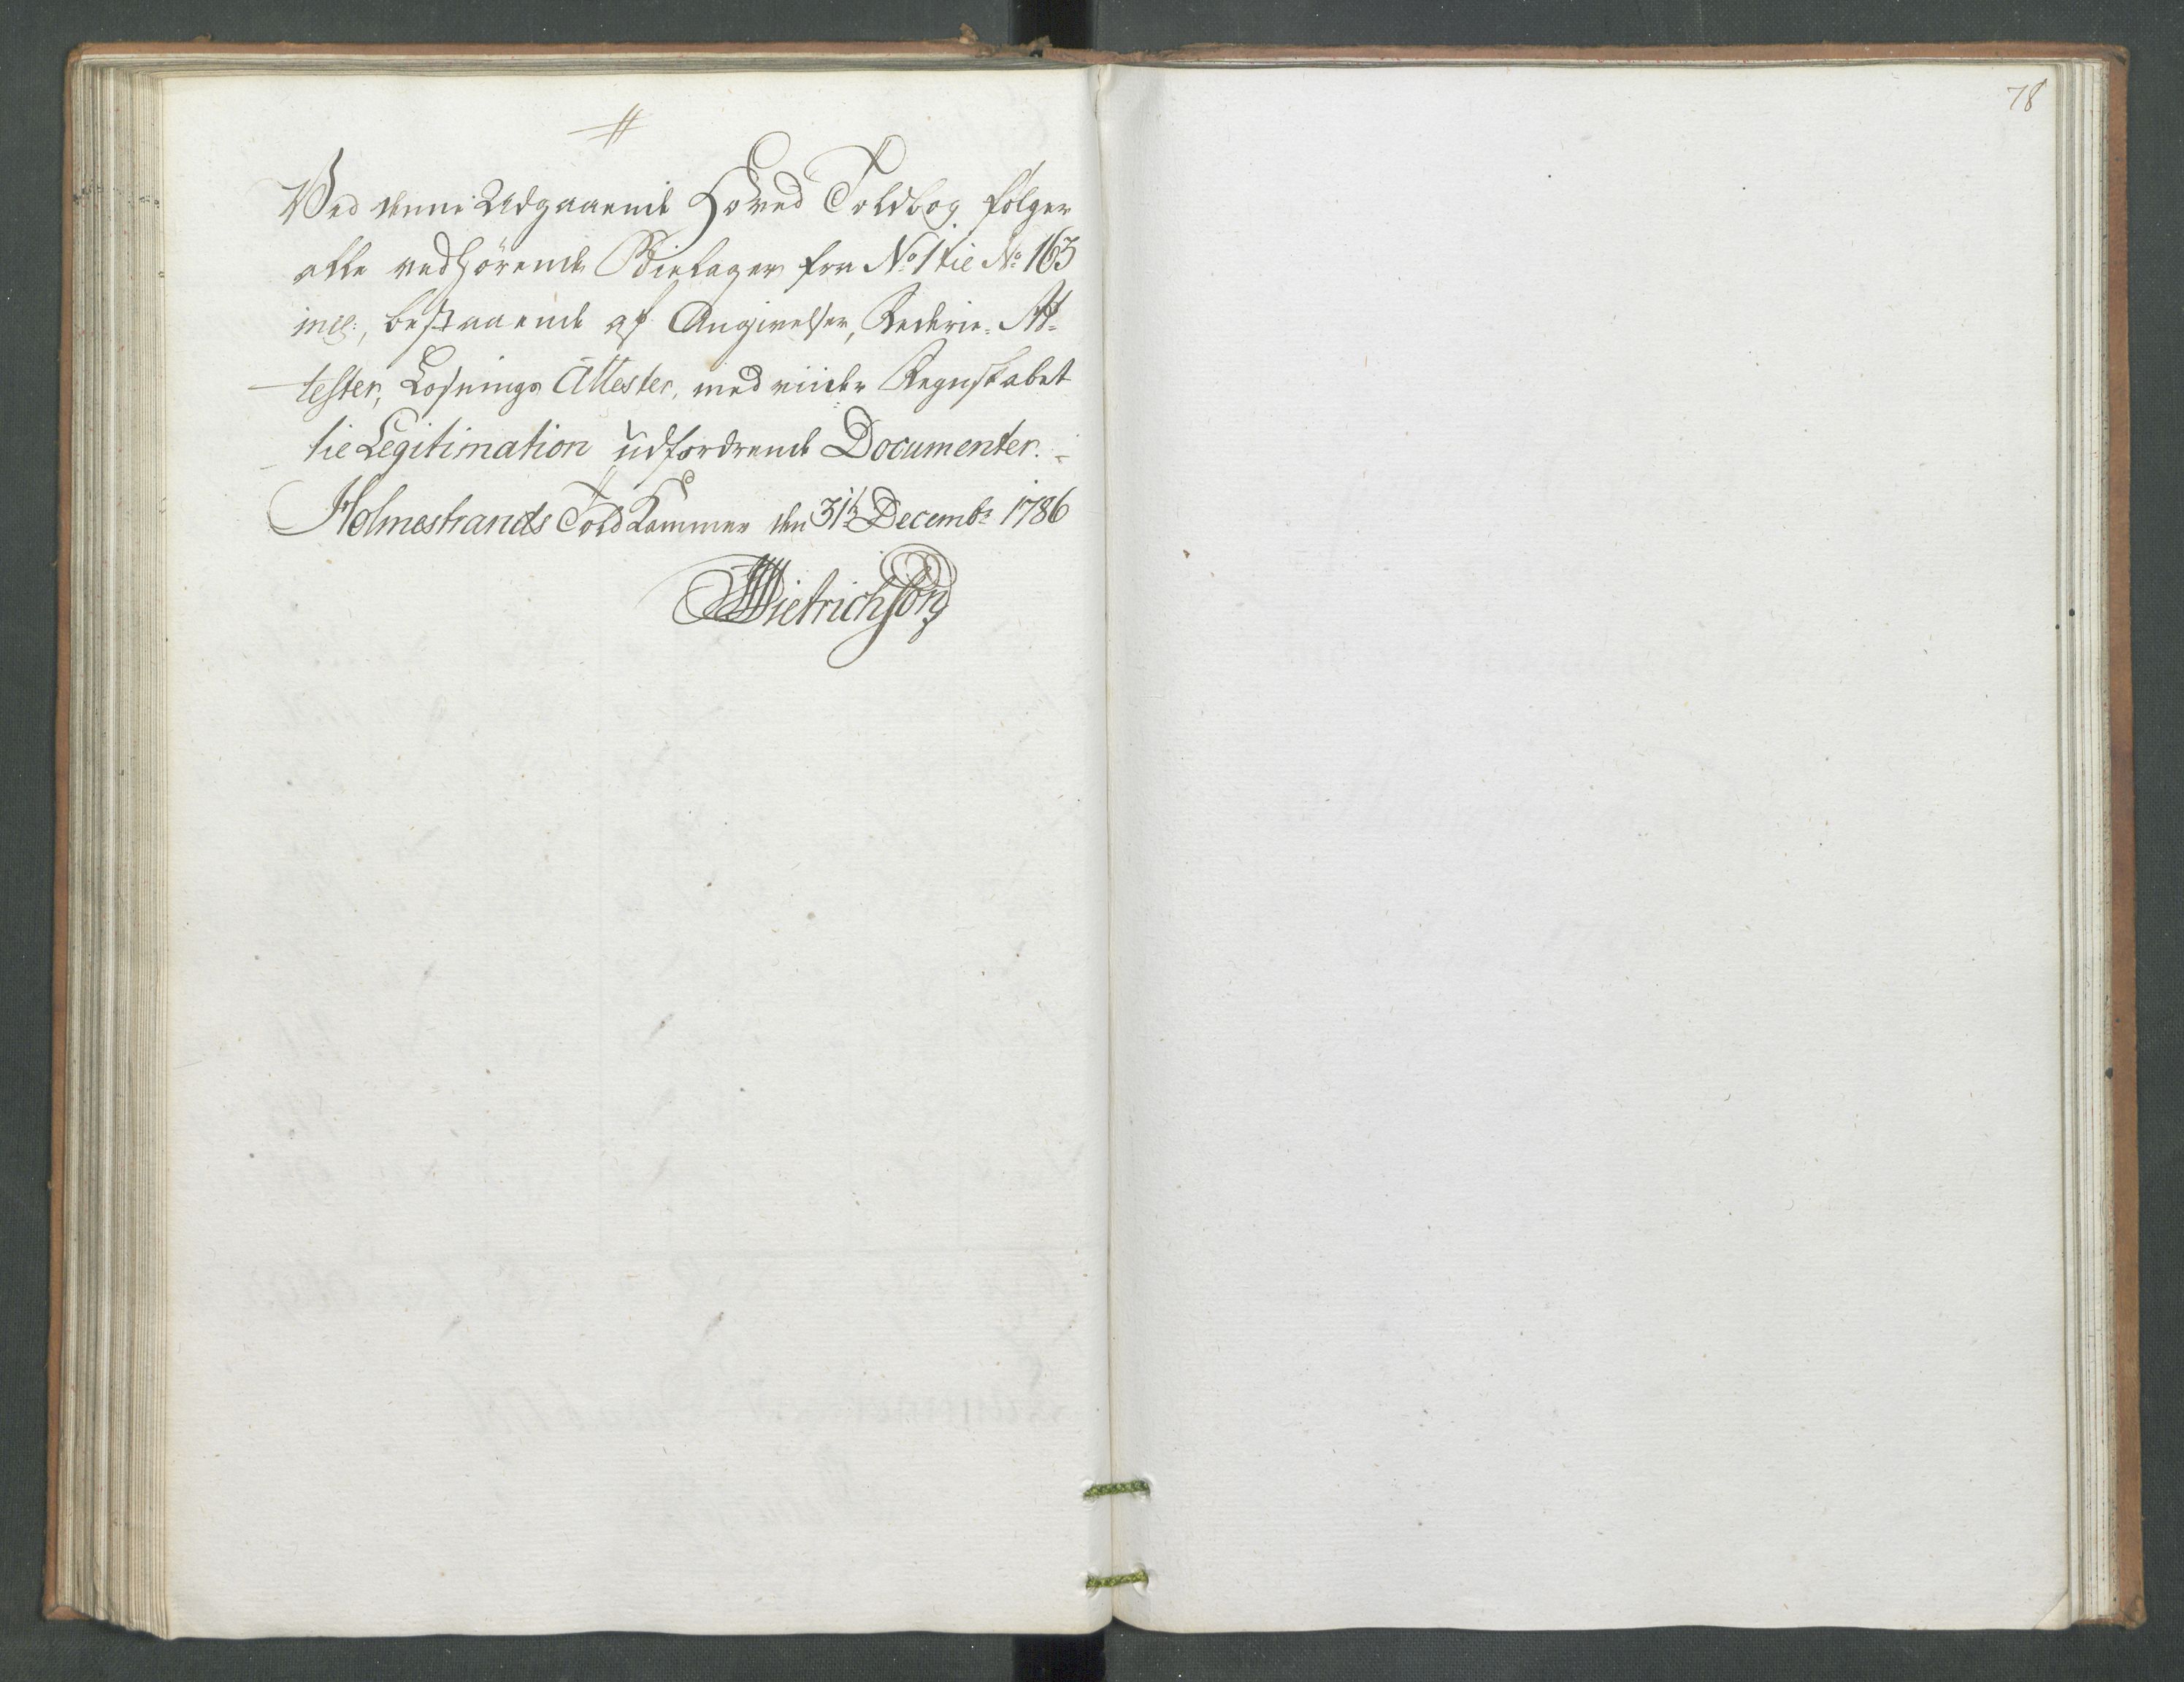 #
Ved denne Udgaaende Hoved Toldbog følger
alle vedhørende Bielager fra No 1 til No 163
incl:, bestaaende af Angivelser, Rederie-At-
tester, Losnings Attester, med viidere Regnskabet
til Legitimation udfordrende Documenter.
Holmestrands Told Kammer den 31te Decembr 1786
Dietrichson
78